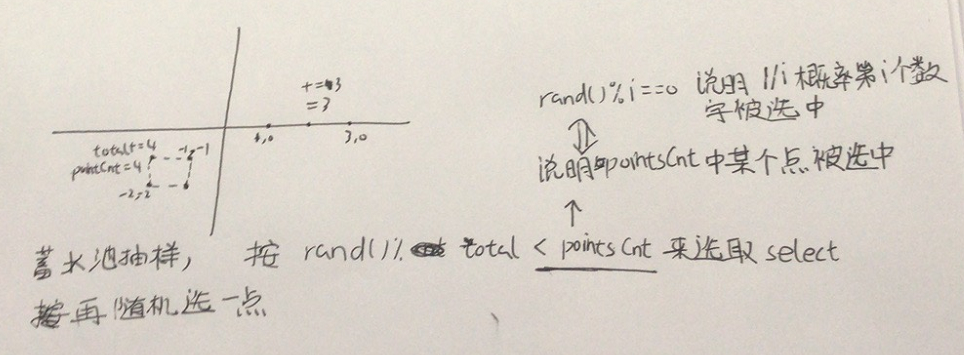 +=3
=3
1,0
3,0
total+=4
pointCnt=4
-1,-1
-2,-2
rand()%i==0 说明 1/i 概率第i个数
字被选中
说明pointsCnt中某个点被选中
蓄水池抽样, 按 rand()% total < pointsCnt 来选取 select
再随机选一点